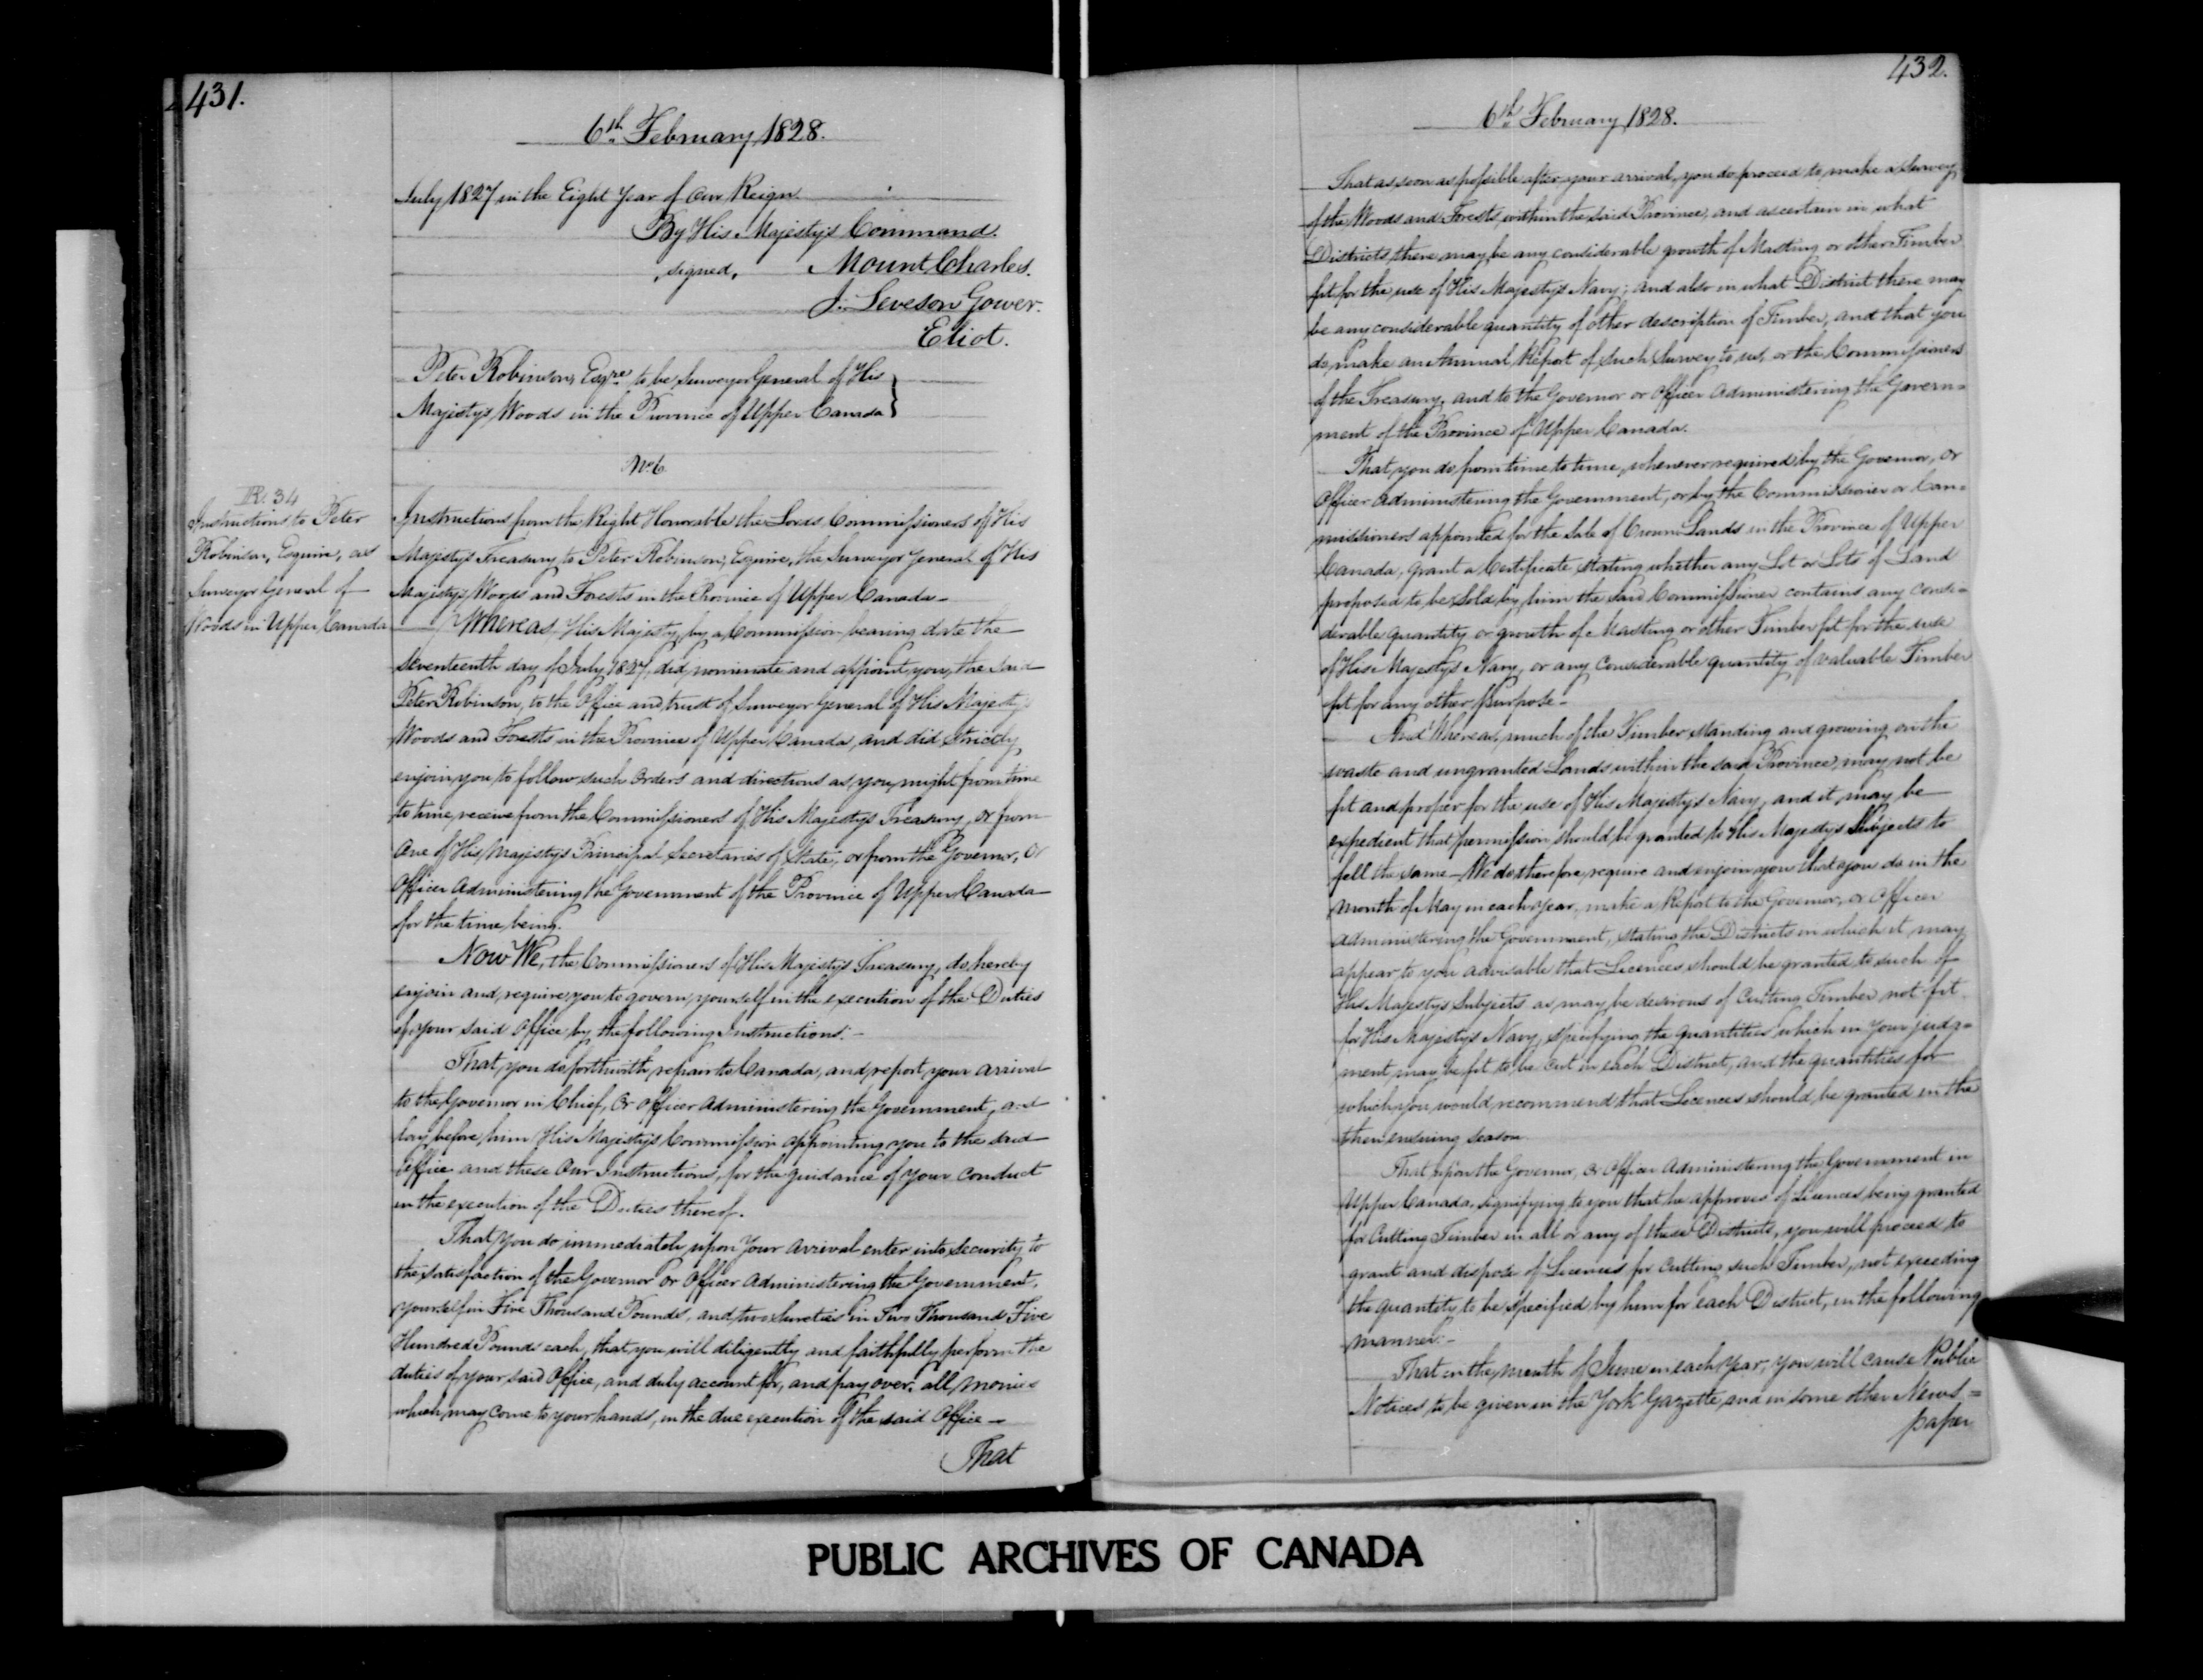 431.
6th February 1828.
July 1827 in the Eight Year of Our Reign.
By His Majesty's Command.
signed, Mount Charles.
J. Leveson Gower.
Eliot.
Peter Robinson, Esqre to be Surveyor General of His
Majesty's Woods in the Province of Upper Canada
No. 6
R. 34
Instructions to Peter
Robinson, Esquire, as
Surveyor General of
Woods in Upper Canada
Instructions from the Right Honorable the Lords Commissioners of His
Majesty's Treasury to Peter Robinson, Esquire, the Surveyor General of His
Majesty's Woods and Forests in the Province of Upper Canada –
Whereas His Majesty, by a Commission bearing date the
seventeenth day of July 1827, did nominate and appoint you, the said
Peter Robinson, to the Office and trust of Surveyor General of His Majesty's
Woods and Forests in the Province of Upper Canada, and did strictly
enjoin you to follow such Orders and directions as you might from time
to time, receive from the Commissioners of His Majesty's Treasury, or from
One of His Majesty's Principal Secretaries of State, or from the Governor, Or
Officer Administering the Government of the Province of Upper Canada
for the time being.
Now We, the Commissioners of His Majesty's Treasury, do hereby
enjoin and require you to govern yourself in the execution of the Duties
of your said Office by the following Instructions: –
That you do forthwith repair to Canada, and report your arrival
to the Governor in Chief, Or Officer Administering the Government, and
lay before him His Majesty's Commission appointing you to the said
Office and these Our Instructions, for the guidance of your conduct
in the execution of the Duties thereof.
That you do immediately upon Your arrival enter into Security to
the satisfaction of the Governor or Officer Administering the Government,
yourself in Five Thousand Pounds, and two Sureties in Two Thousand Five
Hundred Pounds each, that you will diligently and faithfully perform the
duties of your said Office, and duly account for, and pay over, all monies
which may come to your hands, in the due execution of the said Office –
That
432.
6th February 1828.
That as soon as possible after your arrival, you do proceed to make a Survey
of the Woods and Forests, within the said Province, and ascertain in what
Districts there may be any considerable growth of Masting or other Timber
fit for the use of His Majesty's Navy; and also in what District there may
be any considerable quantity of other description of Timber, and that you
do make an Annual Report of such Survey to us, or the Commissioners
of the Treasury, and to the Governor or Officer Administering the Govern=
ment of the Province of Upper Canada.
That you do, from time to time, whenever required by the Governor, or
Officer Administering the Government, or by the Commissioner or Com=
missioners appointed for the Sale of Crown Lands in the Province of Upper
Canada, grant a Certificate stating whether any Lot or Lots of Land
proposed to be sold by him the said Commissioner contains any consi=
derable quantity or growth of Masting or other Timber fit for the use
of His Majesty's Navy, or any Considerable quantity of valuable Timber
fit for any other Purpose –
And Whereas, much of the Timber standing and growing on the
waste and ungranted Lands within the said Province, may not be
fit and proper for the use of His Majesty's Navy, and it may be
expedient that permission should be granted to His Majesty's Subjects to
fell the same – We do, therefore, require and enjoin you that you do in the
month of May in each year, make a Report to the Governor, or Officer
administering the Government, stating the Districts in which it may
appear to you advisable that Licences should be granted to such of
His Majesty's Subjects as may be desirous of Cutting Timber not fit
for His Majesty's Navy, specifying the quantities which in Your judg=
ment may be fit to be cut in each District, and the quantities for
which you would recommend that Licences should be granted in the
then ensuing season.
That upon the Governor, Or Officer Administering the Government in
Upper Canada, signifying to you that he approves of Licences being granted
for Cutting Timber in all or any of these Districts, you will proceed to
grant and dispose of Licences for cutting such Timber, not exceeding
the quantity to be specified by him for each District, in the following
manner: –
That in the month of June in each Year, you will cause Public
Notices to be given in the York Gazette, and in some other News=
paper
PUBLIC ARCHIVES OF CANADA